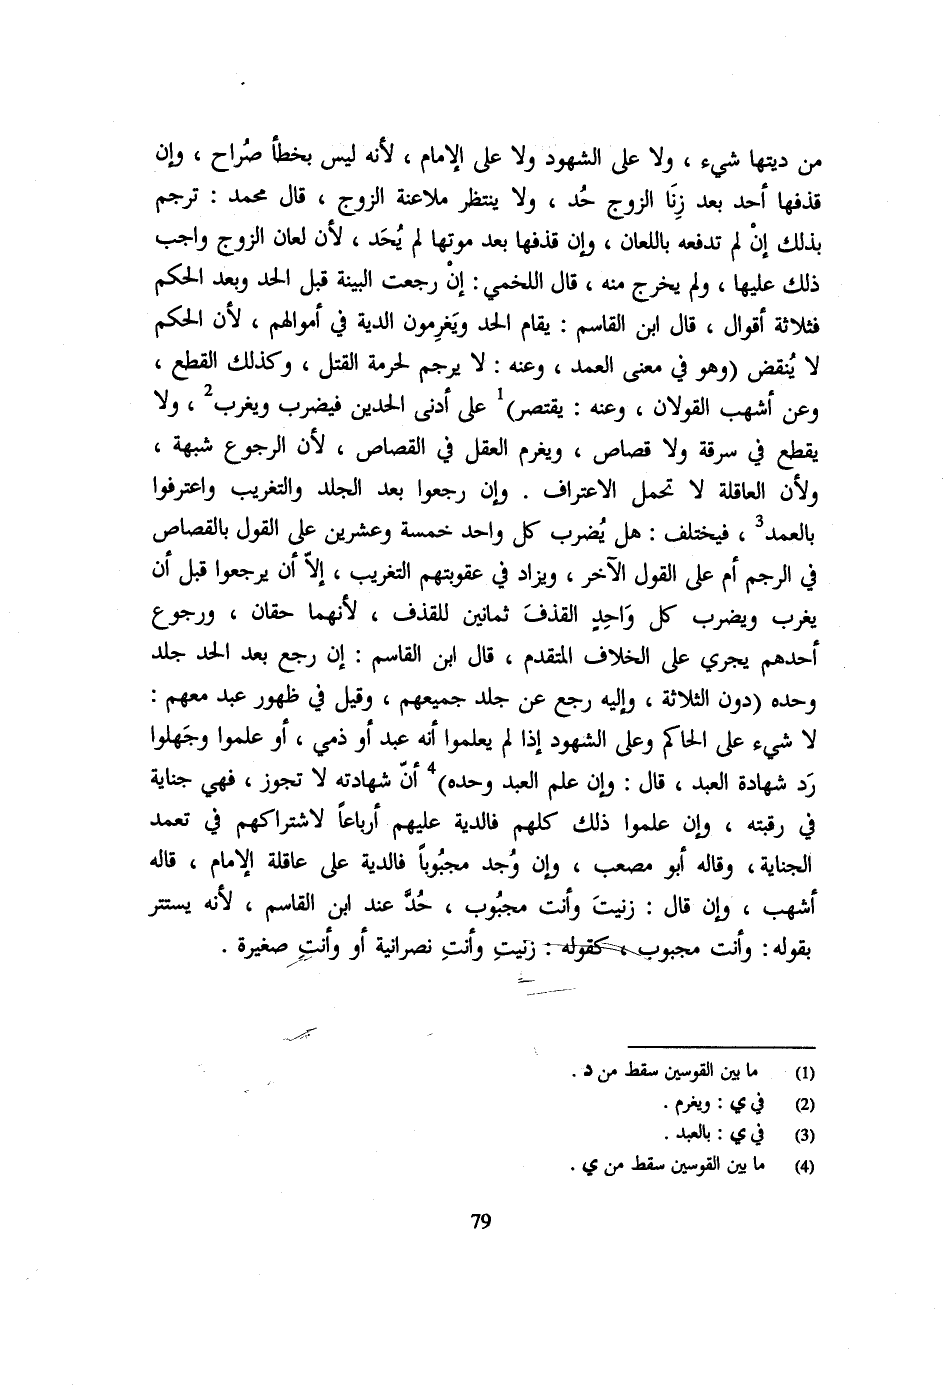 من ديتها شيء ، ولا على الشهود ولا على الإمام ، لأنه ليس بخطأ صُراح ، وإن
قذفها أحد بعد زِنَا الزوج حُد ، ولا ينتظر ملاعنة الزوج ، قال محمد : ترجم
بذلك إنْ لم تدفعه باللعان ، وإن قذفها بعد موتها لم يُحَد ، لأن لعان الزوج واجب
ذلك عليها ، ولم يخرج منه ، قال اللخمي : إنْ رجعت البينة قبل الحد وبعد الحكم
فثلاثة أقوال ، قال ابن القاسم : يقام الحد ويَغرِمون الدية في أموالهم ، لأن الحكم
لا يُنقض (وهو في معنى العمد ، وعنه : لا يرجم لحرمة القتل ، وكذلك القطع ،
وعن أشهب القولان ، وعنه : يقتصر)1 على أدنى الحدين فيضرب ويغرب2 ، ولا
يقطع في سرقة ولا قصاص ، ويغرم العقل في القصاص ، لأن الرجوع شبهة ،
ولأن العاقلة لا تحمل الاعتراف . وإن رجعوا بعد الجلد والتغريب واعترفوا
بالعمد3 ، فيختلف : هل يُضرب كل واحد خمسة وعشرين على القول بالقصاص
في الرجم أم على القول الآخر ، ويزاد في عقوبتهم التغريب ، إلاّ أن يرجعوا قبل أن
يغرب ويضرب كل وَاحِدٍ القذفَ ثمانين للقذف ، لأنهما حقان ، ورجوع
أحدهم يجري على الخلاف المتقدم ، قال ابن القاسم : إن رجع بعد الحد جلد
وحده (دون الثلاثة ، وإليه رجع عن جلد جميعهم ، وقيل في ظهور عبد معهم :
لا شيء على الحاكم وعلى الشهود إذا لم يعلموا أنه عبد أو ذمي ، أو علموا وجَهلوا
رَد شهادة العبد ، قال : وإن علم العبد وحده)4 أنّ شهادته لا تجوز ، فهي جناية
في رقبته ، وإن علموا ذلك كلهم فالدية عليهم أرباعاً لاشتراكهم في تعمد
الجناية ، وقاله أبو مصعب ، وإن وُجد مجبُوباً فالدية على عاقلة الإمام ، قاله
أشهب ، وإن قال : زنيتَ وأنت مجبُوب ، حُدَّ عند ابن القاسم ، لأنه يستتر
بقوله : وأنت مجبوب ، كقوله : زنيتِ وأنتِ نصرانية أو وأنتِ صغيرة .
(1) ما بين القوسين سقط من د .
(2) في ي : ويغرم .
(3) في ي : بالعبد .
(4) ما بين القوسين سقط من ي .
79